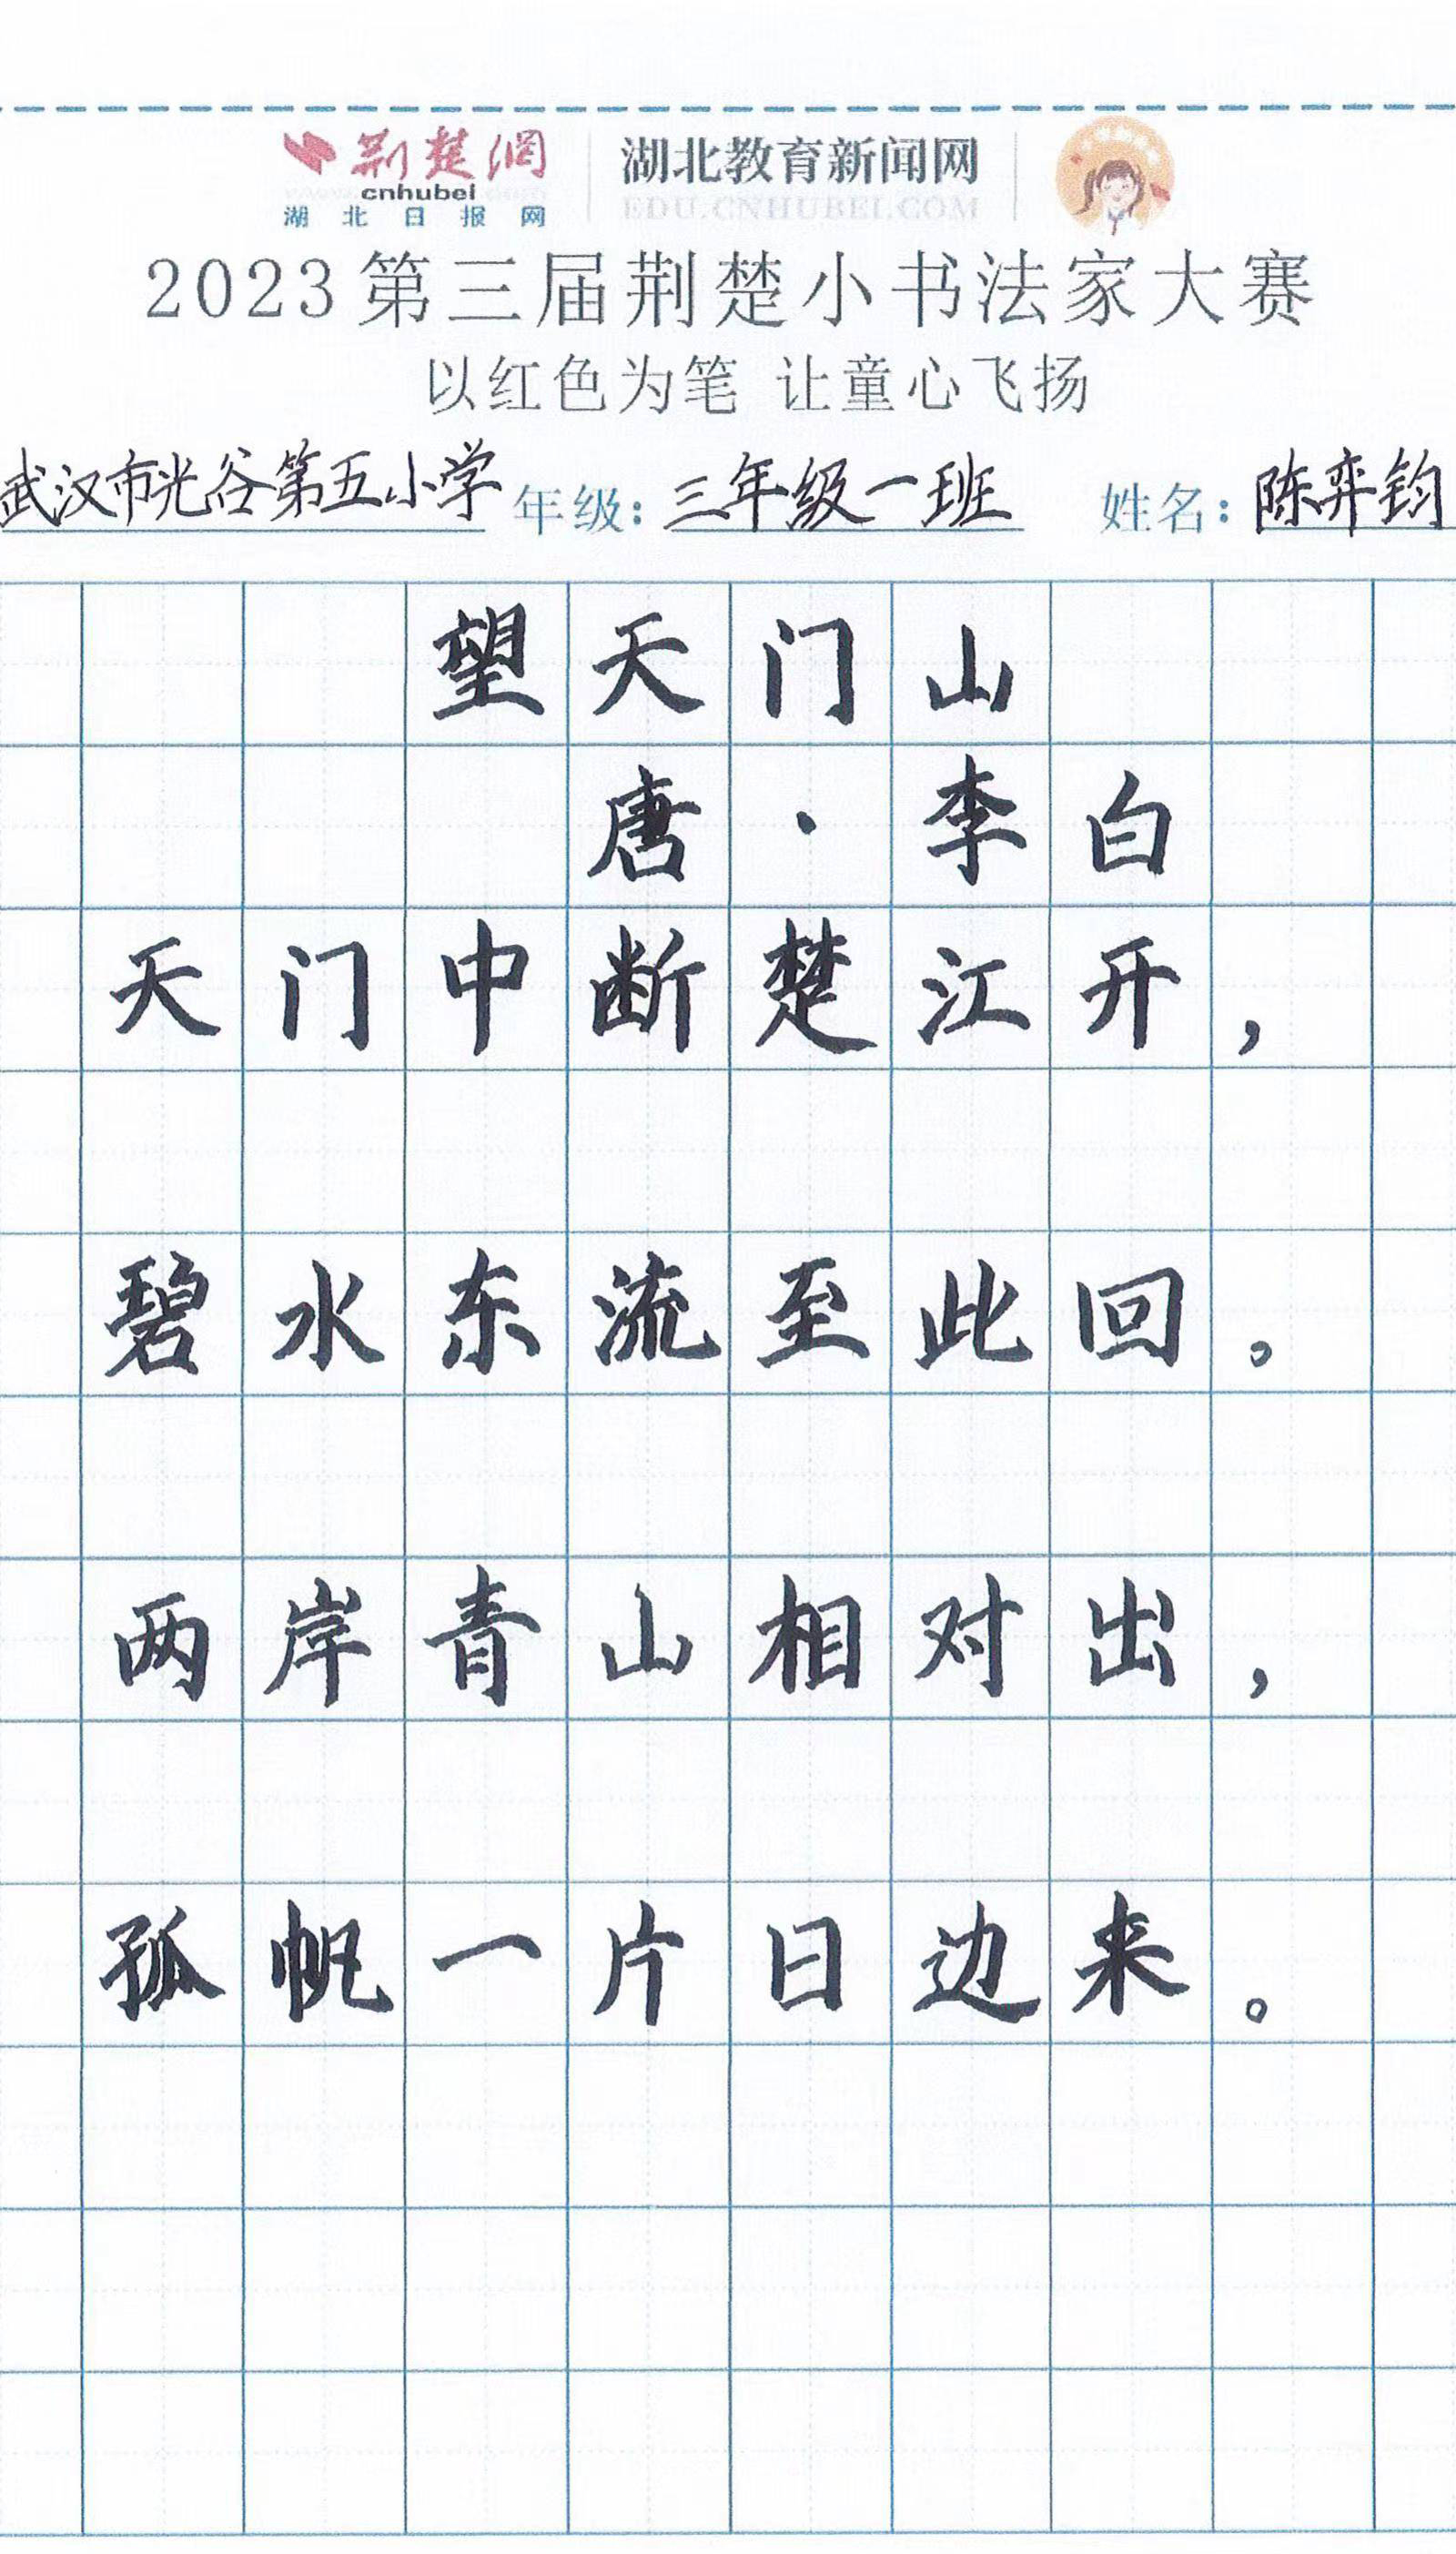 荆楚網 湖北教育新闻网
www.cnhubei.com EDU.CNHUBEI.COM
湖北日报网
2023第三届荆楚小书法家大赛
以红色为笔 让童心飞扬
武汉市光谷第五小学 年级：三年级一班 姓名：陈弈钧
望天门山
唐·李白
天门中断楚江开，
碧水东流至此回。
两岸青山相对出，
孤帆一片日边来。